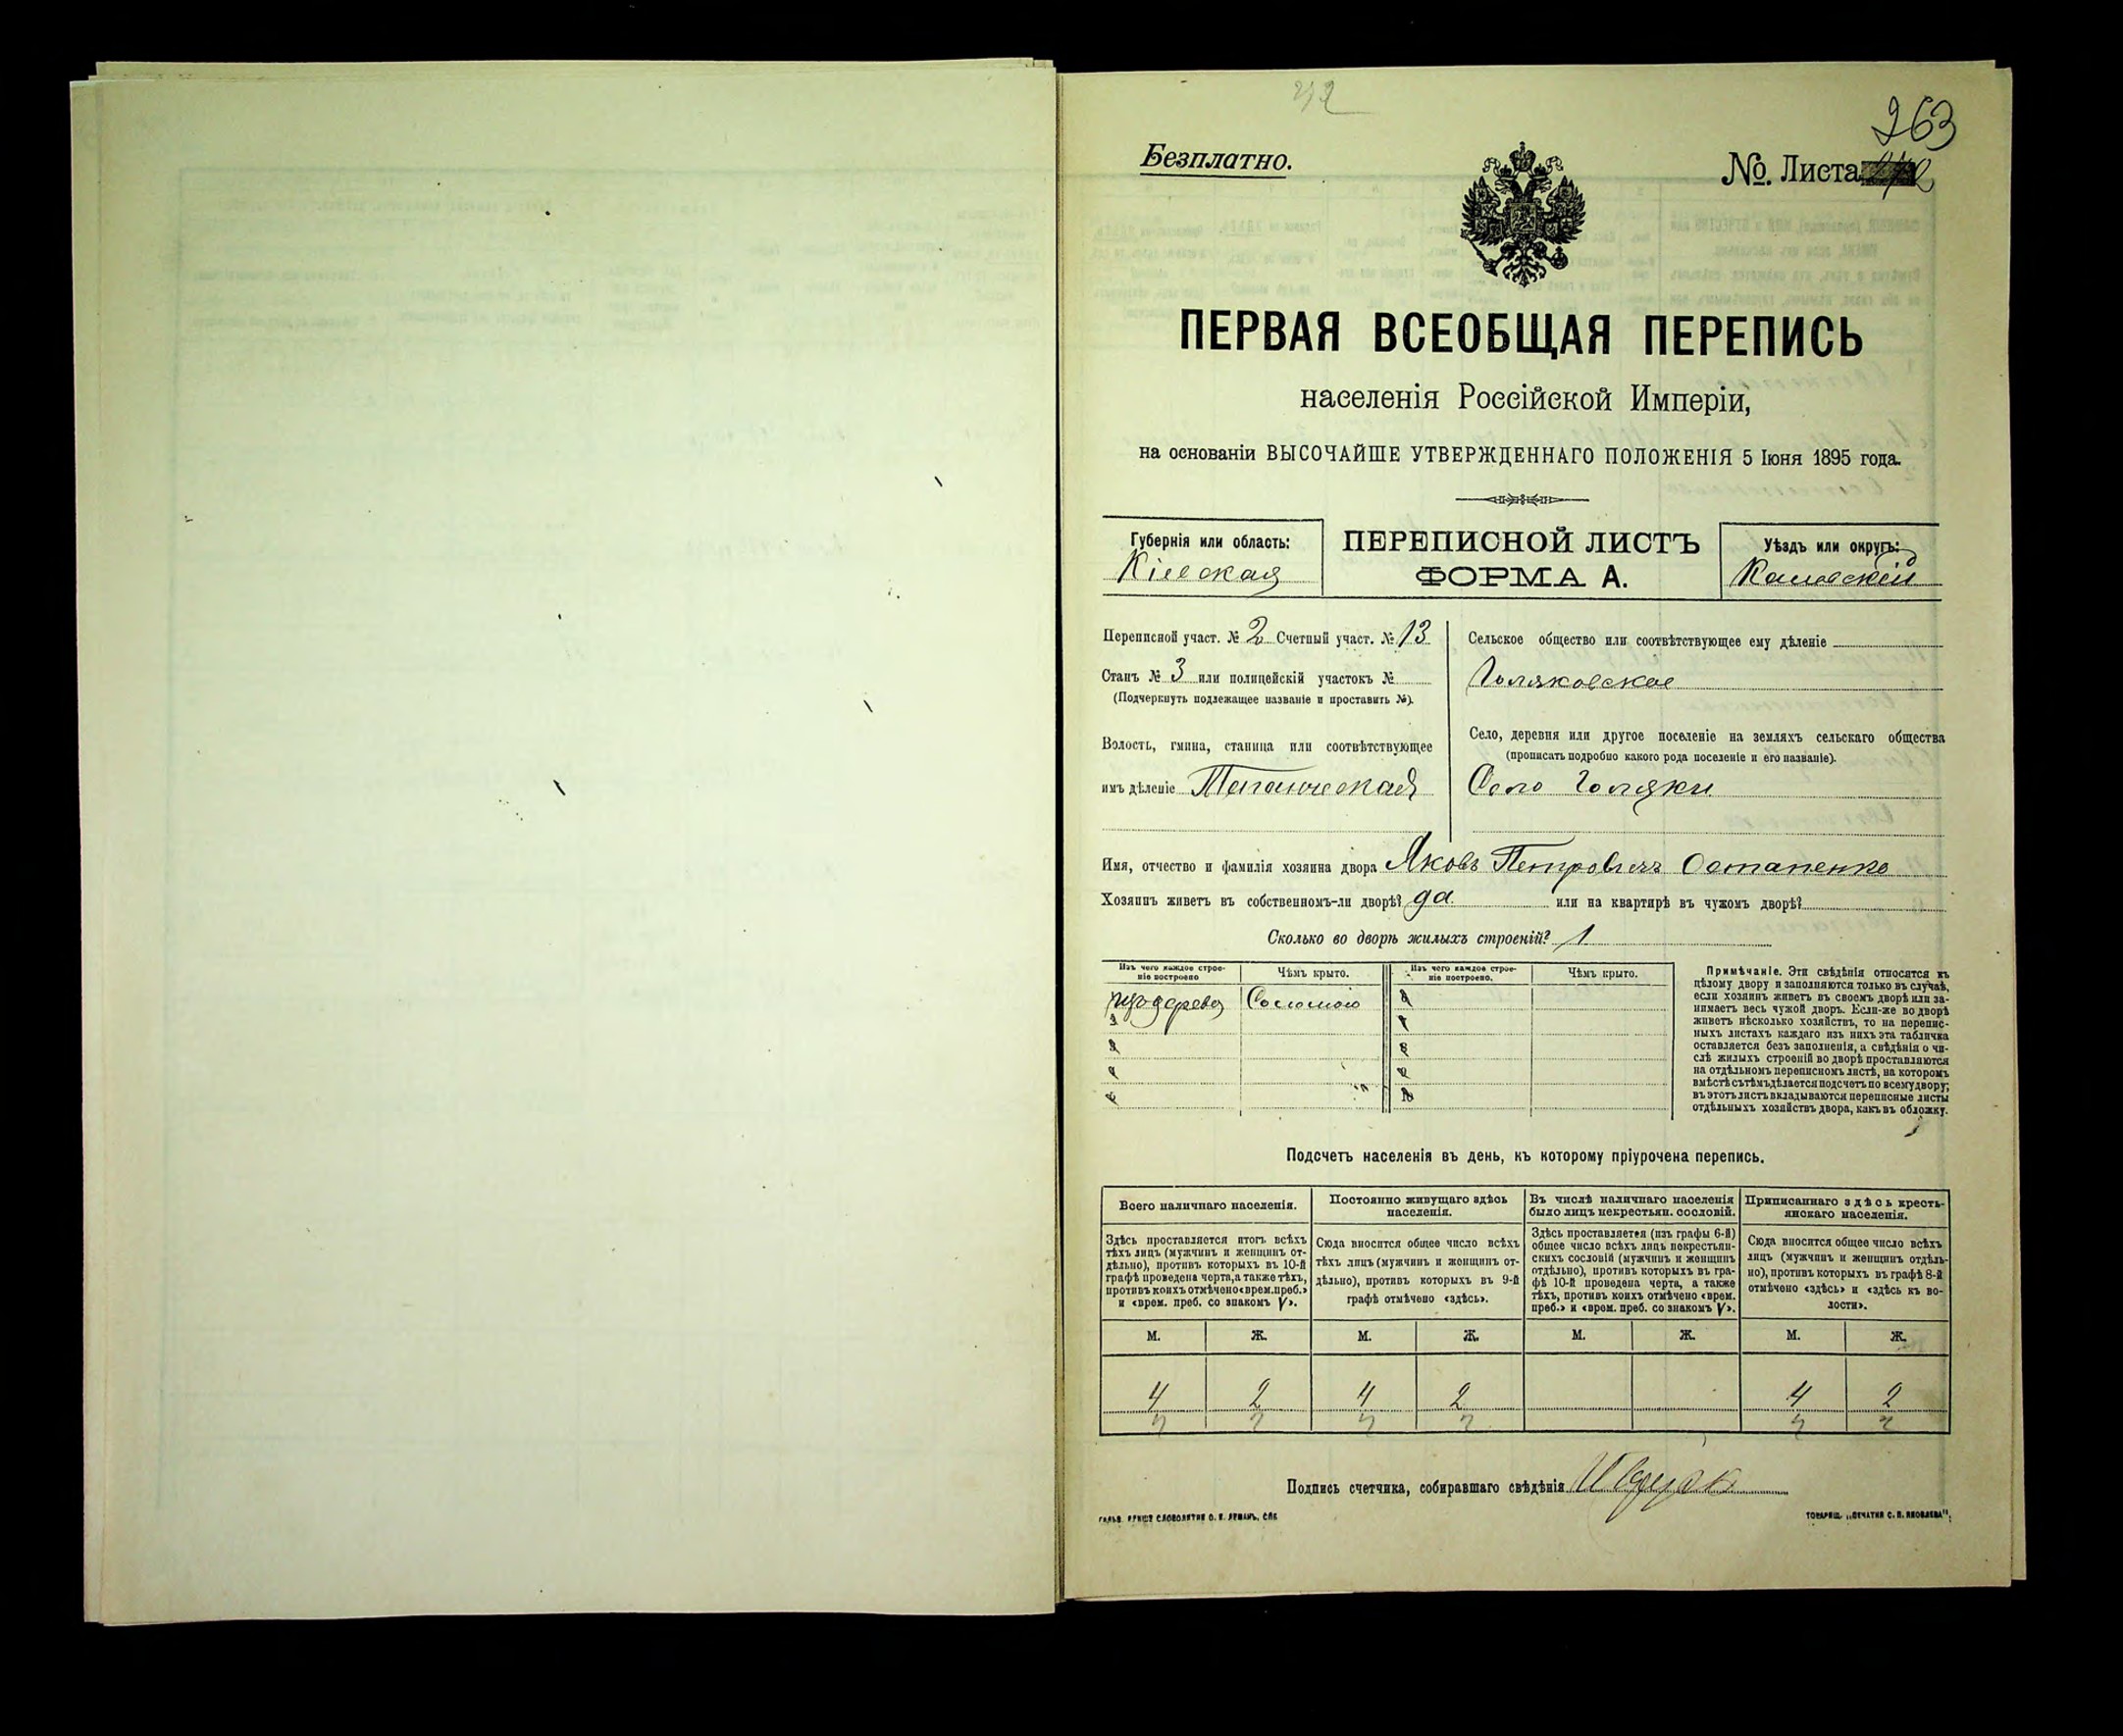 263
Безплатно.
№. Листа
ПЕРВАЯ ВСЕОБЩАЯ ПЕРЕПИСЬ
населенія Россійской Имперіи,
на основаніи ВЫСОЧАЙШЕ УТВЕРЖДЕННАГО ПОЛОЖЕНІЯ 5 Іюня 1895 года.
Губернія или область:
Кіевская
ПЕРЕПИСНОЙ ЛИСТЪ
ФОРМА А.
Уѣздъ или округъ:
Каневскій
Переписной участ. № 2 Счетный участ. № 13
Станъ № 3 или полицейскій участокъ №
(Подчеркнуть подлежащее названіе и проставить №).
Волость, гмина, станица или соотвѣтствующее
имъ дѣленіе
Сельское общество или соотвѣтствующее ему дѣленіе
Голяковское
Село, деревня или другое поселеніе на земляхъ сельскаго общества
(прописать подробно какого рода поселеніе и его названіе).
Село Голяки
Имя, отчество и фамилія хозяина двора Яковъ Петровичъ Остапенко
Хозяинъ живетъ въ собственномъ-ли дворѣ? да или на квартирѣ въ чужомъ дворѣ?
Сколько во дворѣ жилыхъ строеній? 1
Изъ чего каждое строе-
ніе построено
Чѣмъ крыто.
Изъ чего каждое строе-
ніе построено.
Чѣмъ крыто.
изъ дерева Соломою
Примѣчаніе. Эти свѣдѣнія относятся къ
цѣлому двору и заполняются только въ случаѣ,
если хозяинъ живетъ въ своемъ дворѣ или за-
нимаетъ весь чужой дворъ. Если-же во дворѣ
живетъ нѣсколько хозяйствъ, то на перепис-
ныхъ листахъ каждаго изъ нихъ эта табличка
оставляется безъ заполненія, а свѣдѣнія о чи-
слѣ жилыхъ строеній во дворѣ проставляются
на отдѣльномъ переписномъ листѣ, на которомъ
вмѣстѣ съ тѣмъ дѣлается подсчетъ по всему двору;
въ этотъ листъ вкладываются переписные листы
отдѣльныхъ хозяйствъ двора, какъ въ обложку.
Подсчетъ населенія въ день, къ которому пріурочена перепись.
Всего наличнаго населенія.
Здѣсь проставляется итогъ всѣхъ
тѣхъ лицъ (мужчинъ и женщинъ от-
дѣльно), противъ которыхъ въ 10-й
графѣ проведена черта, а также тѣхъ,
противъ коихъ отмѣчено «врем. преб.»
и «врем. преб. со знакомъ V».
Постоянно живущаго здѣсь
населенія.
Сюда вносится общее число всѣхъ
тѣхъ лицъ (мужчинъ и женщинъ от-
дѣльно), противъ которыхъ въ 9-й
графѣ отмѣчено «здѣсь».
Въ числѣ наличнаго населенія
было лицъ некрестьян. сословій.
Здѣсь проставляется (изъ графы 6-й)
общее число всѣхъ лицъ некрестьян-
скихъ сословій (мужчинъ и женщинъ
отдѣльно), противъ которыхъ въ гра-
фѣ 10-й проведена черта, а также
тѣхъ, противъ коихъ отмѣчено «врем.
преб.» и «врем. преб. со знакомъ V».
Приписаннаго здѣсь кресть-
янскаго населенія.
Сюда вносится общее число всѣхъ
лицъ (мужчинъ и женщинъ отдѣль-
но), противъ которыхъ въ графѣ 8-й
отмѣчено «здѣсь» и «здѣсь къ во-
лости».
М. Ж. М. Ж. М. Ж. М. Ж.
4 2 4 2 4 2
Подпись счетчика, собиравшаго свѣдѣнія
ТОВАРИЩ. „ПЕЧАТНЯ С. П. ЯКОВЛЕВА“.